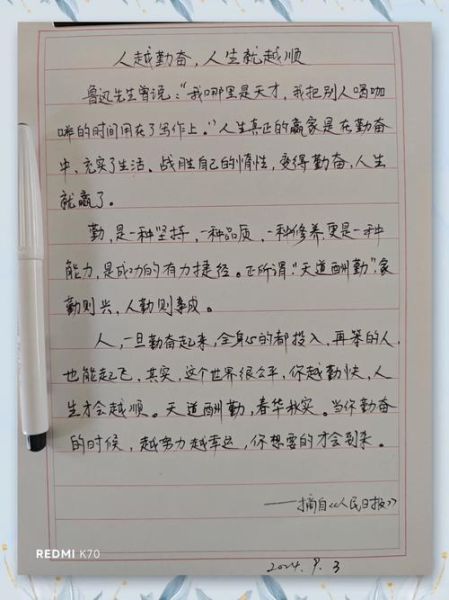 人越勤奋，人生就越顺
鲁迅先生曾说："我哪里是天才，我把别人喝咖
啡的时间用在了写作上。"人生真正的赢家是在勤奋
中、充实了生活、战胜自己的惰性，变得勤奋，人生
就赢了。
勤，是一种坚持，一种品质，一种修养，更是一种
能力，是成功的有力捷径。正所谓："天道酬勤"，家
勤则兴，人勤则事成。
人，一旦勤奋起来，全身心的都投入，再笨的人，
也能起飞，其实，这个世界很公平，你越勤快，人
生才会越顺。天道酬勤，春华秋实。当你勤奋
的时候，越努力越幸运，你想要的才会到来。
——摘自《人民日报》
2024.9.3
REDMI K70